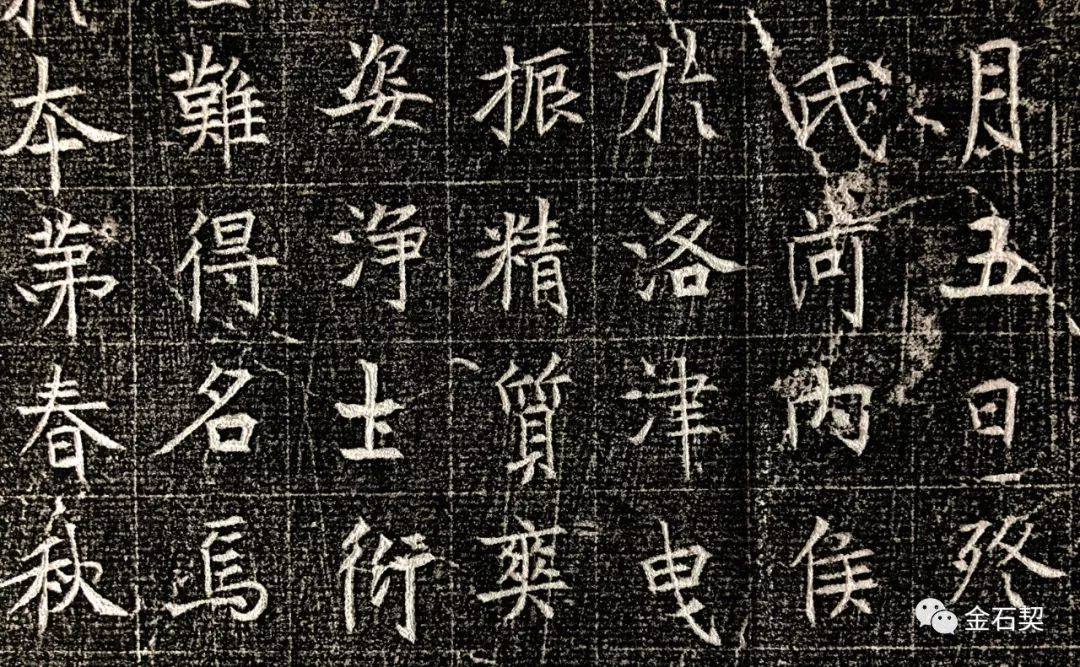 月五日
氏尚内侯
於洛津曳
振精質爽
姿淨士衍
難得名焉
本苐春秋
金石契